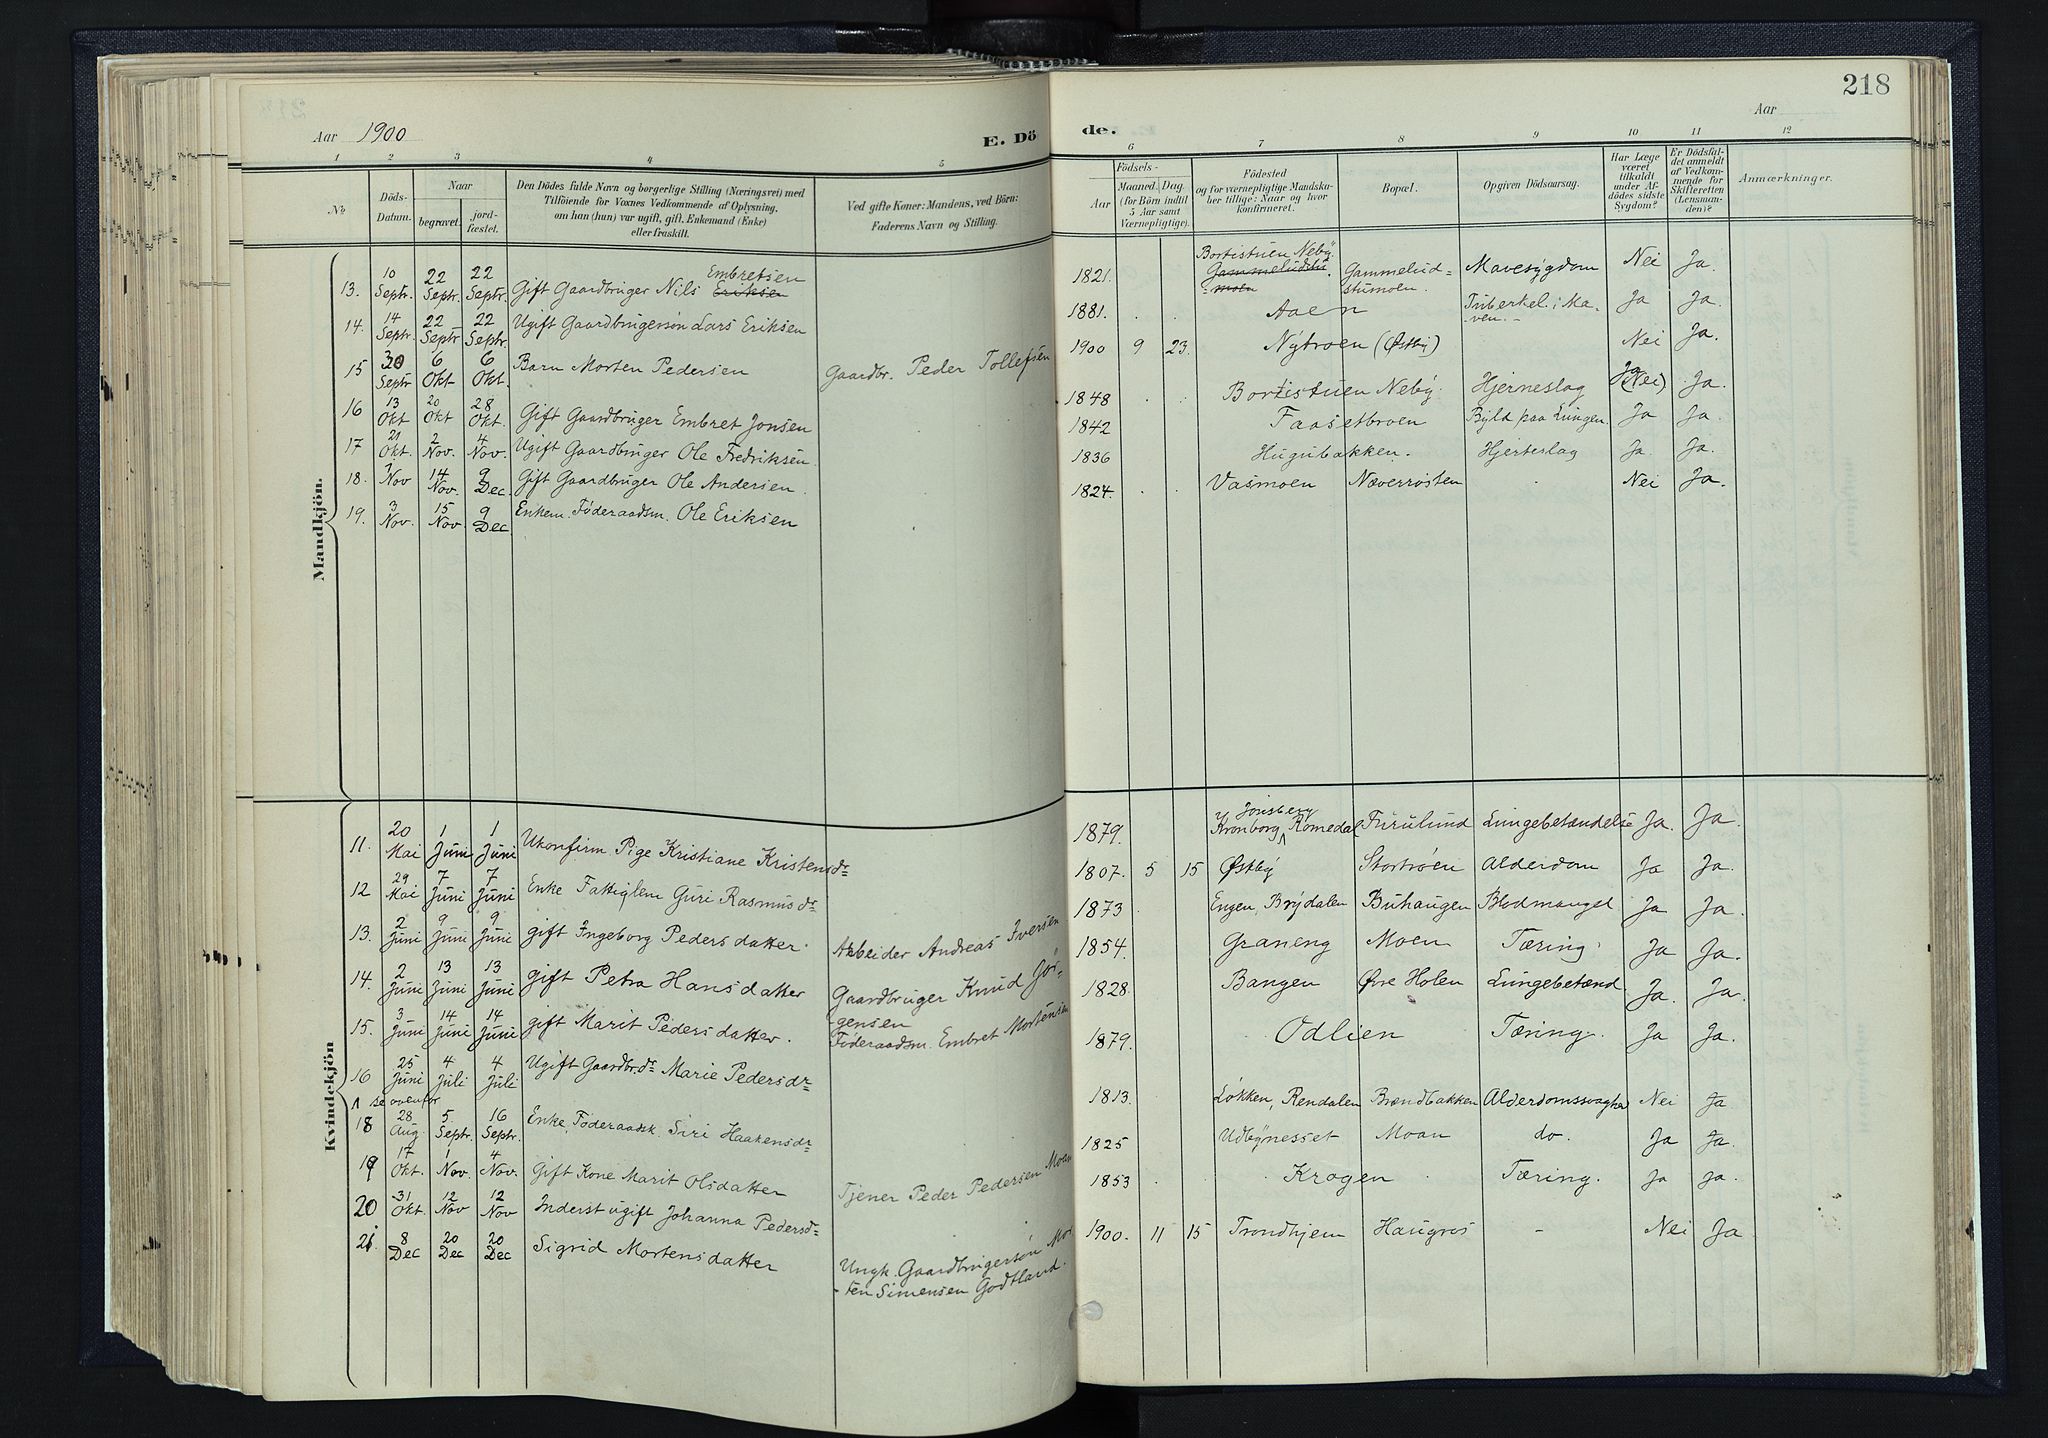 218
Aar 1900
E. Dö
de.
Aar
1 2 3 4 5
6 7 8 9 10 11 12
No
Döds-Datum.
Naar
begravet.
jord-fæstet.
Den Dödes fulde Navn og borgerlige Stilling (Næringsvei) med
Tilföiende for Voxnes Vedkommende af Oplysning,
om han (hun) var ugift, gift, Enkemand (Enke)
eller fraskilt.
Ved gifte Koner: Mandens, ved Börn:
Faderens Navn og Stilling.
Födsels-
Aar
Maaned. Dag.
(for Börn indtil
5 Aar samt
Værnepligtige).
Födested
og for værnepligtige Mandska-
ber tillige: Naar og hvor
konfirmeret.
Bopæl.
Opgiven Dödsaarsag.
Har Læge
været
tilkaldt
under Af-
dödes sidste
Sygdom?
Er Dödsfal-
det anmeldt
af Vedkom-
mende for
Skifteretten
(Lensman-
den)?
Anmærkninger.
Mandkjön.
13. 10 Septr. 22 Septr. 22 Septr. Gift Gaardbruger Nils Eriksen Embretsen
14. 14 Septr. 22 Septr 22 Septr. Ugift Gaardbrugersøn Lars Eriksen
15 30 Septr 6 Okt 6 Okt. Barn Morten Pedersen Gaardbr. Peder Tollefsen
16 13 Okt 20 Okt 28 Okt. Gift Gaardbruger Embret Jonsen
17 21 Okt. 2 Nov. 4 Nov. Ugift Gaardbruger Ole Fredriksen.
18. 1 Nov 14 Nov. 9 Dec. Gift Gaardbruger Ole Andersen.
19. 3 Nov. 15 Nov. 9 Dec Enkem. Føderaadsm. Ole Eriksen
1821. Bortistuen Neby. Gammeludstu-moen Gammelud-stumoen. Mavesygdom Nei Ja.
1881. Aaen Tuberkel. i Ma-ven. Ja Ja.
1900 9 23. Nytroen (Østby) Nei Ja.
1848 Bortistuen Neby. Hjerneslag Ja (Nei) Ja.
1842 Faasetbroen Byld paa Lungen. Ja Ja.
1836 Hugubakken. Hjerteslag Ja. Ja.
1824. Vasmoen Næverrosten Nei Ja.
Kvindekjön
11. 20 Mai 1 Juni 1 Juni Ukonfirm. Pige Kristiane Kristensdr
12 29 Mai 7 Juni 7 Juni Enke Fattiglem Guri Rasmusdr
13. 2 Juni 9 Juni 9 Juni gift Ingeborg Pedersdatter. Arbeider Andreas Iversen
14. 2 Juni 13 Juni 13 Juni gift Petra Hansdatter Gaardbruger Knud Jør-
gensen
15. 3 Juni 14 Juni 14 Juni gift Marit Pedersdatter. Føderaadsm. Embret Mortensen
16 25 Juni 4 Juli 4 Juli Ugift Gaardbr.dr Marie Pedersdr
se ovenfor
18 28 Aug. 5 Septr. 16 Septr. Enke, Føderaadsk. Siri Haakensdr
19 17 Okt. 1 Nov. 4 Nov. Gift Kone Marit Olsdatter Tjener Peder Pedersen Moan
20 31 Okt. 12 Nov 12 Nov Inderst ugift Johanna Pedersd
21. 8 Dec 20 Dec 20 Dec Sigrid Mortensdatter Ungk. Gaardbrugersøn Mor-
ten Simensen Godtland.
1879. Kronborg Jønsberg Romedal Furulund Lungebetændelse Ja. Ja.
1807. 5 15 Østby Stortrøen Alderdom Ja Ja.
1873 Engen, Brydalen Buhaugen Blodmangel Ja Ja.
1854. Graneng Moen Tæring. Ja Ja.
1828. Bangen Øvre Holen Lungebetænd Ja. Ja.
1879. Odlien Tæring. Ja Ja.
1813. Løkken, Rendalen Brændbakken Alderdomssvaghed Nei Ja
1825 Udbynesset Moan do. Ja Ja.
1853 Krogen Tæring. Ja Ja.
1900. 11 15 Trondhjem Haugros - Nei Ja